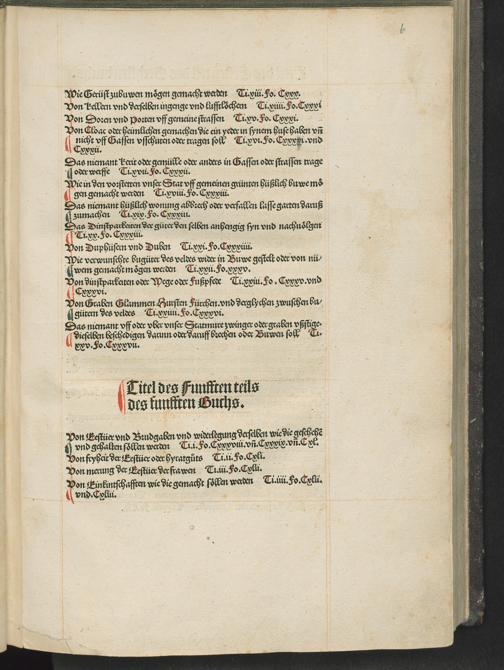 6
Wie Gerüst zubuwen mögen gemacht werden Ti.xiii. Fo. Cxxx.
Von kellern vnd derselben ingenge vnd lufftlöchern Ti.xiiii. Fo. Cxxxi
Von Doren vnd Porten vff gemeine strassen Ti.xv. Fo. Cxxxi.
Von Cloac oder heimlichen gemachen die ein yeder in synem huse haben vñ
nicht vff Gassen vßschüten oder tragen soll Ti.xvi. Fo. Cxxxi. vnd
Cxxxii.
Das niemant kerit oder gemülle oder anders in Gassen oder strassen trage
oder werffe Ti.xvii. Fo. Cxxxii.
Wie in den vorstetten vnser Stat vff gemeinen gründen hüßlich buwe mö
gen gemacht werden Ti.xviii. Fo. Cxxxiii.
Das niemant hüßlich wonung abbrech oder verfallen lasse garten daruß
zumachen Ti.xix. Fo. Cxxxiii.
Das Dinstparkeiten der güter den selben anhengig syn vnd nachuölgen
Ti.xx. Fo. Cxxxiii.
Von Duphüsern vnd Duben Ti.xxi. Fo. Cxxxiiii.
Wie verwunschte bugüter des veldes wider in Buwe gestelt oder von nü
wem gemacht mögen werden Ti.xxii. Fo. xxxv.
Von dinstparkeiten oder Wege oder Fußpfede Ti.xxiii. Fo. Cxxxv. vnd
Cxxxvi.
Von Graben Glammen Hursten Fürchen. vnd derglychen zwuschen bu
gütern des veldes Ti.xxiiii. Fo. Cxxxvi.
Das niemant vff oder vber vnser Statmure zwinger oder graben vßstige
dieselben beschedigen darinn oder daruff brechen oder Buwen soll Ti.
xxv. Fo. Cxxxvii.
Titel des Funfften teils
des funfften Buchs.
Von Eestüer vnd Brudgaben vnd widerlegung derselben wie die gescheht
vnd gehalten söllen werden Ti.i. Fo. Cxxxviii. vñ. Cxxxix. vñ. Cxl.
Von fryheit der Eestüer oder hyratgüts Ti.ii. Fo. Cxli.
Von merung der Eestüer der frawen Ti.iii. Fo. Cxlii.
Von Einkintschafften wie die gemacht söllen werden Ti.iiii. Fo. Cxlii.
vnd. Cxliii.